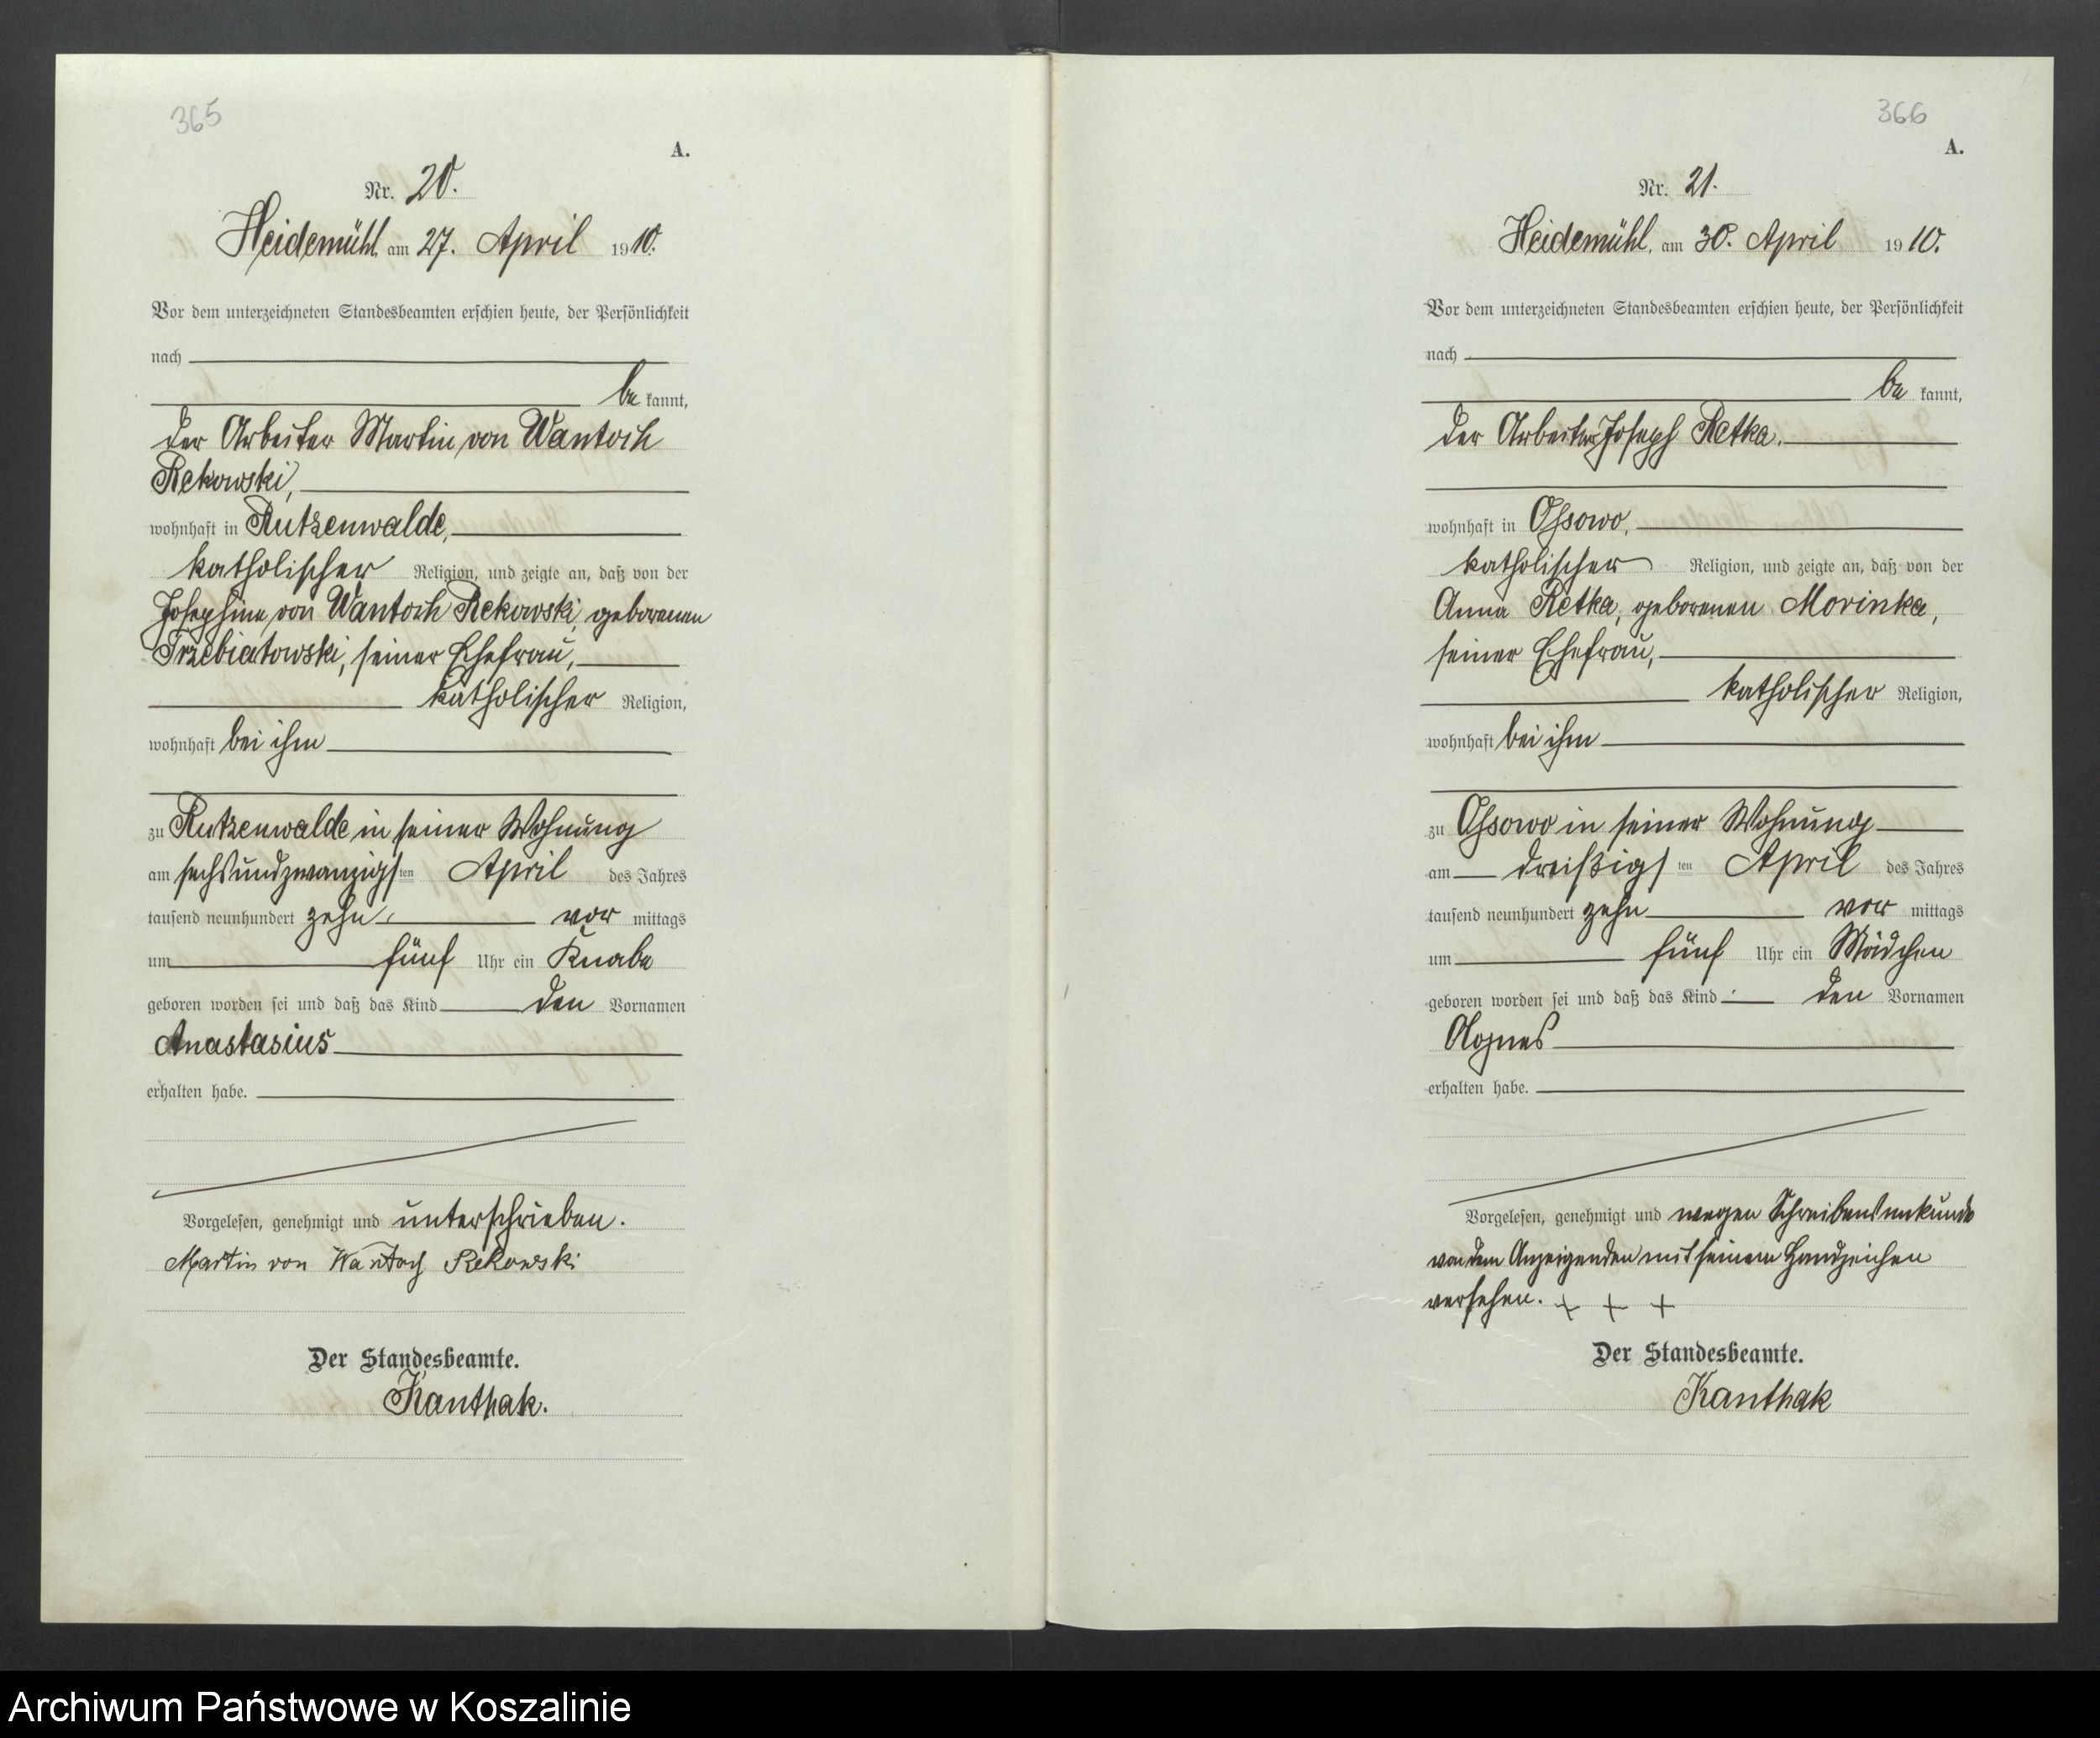 365
A.
Nr. 20.
Heidemühl am 27. April 1910.
Vor dem unterzeichneten Standesbeamten erschien heute, der Persönlichkeit
nach
be kannt,
der Arbeiter Martin von Wantoch
Rekowski,
wohnhaft in Rutzenwalde,
katholischer Religion, und zeigte an, daß von der
Josephine von Wantoch Rekowski, geborenen
Trzebiatowski, seiner Ehefrau,
katholischer Religion,
wohnhaft bei ihm
zu Rutzenwalde in seiner Wohnung
am sechsundzwanzigsten April des Jahres
tausend neunhundert zehn vor mittags
um fünf Uhr ein Knabe
geboren worden sei und daß das Kind den Vornamen
Anastasius
erhalten habe.
Vorgelesen, genehmigt und unterschrieben.
Martin von Wantoch Rekowski
Der Standesbeamte.
Kanthak.
366
A.
Nr. 21.
Heidemühl, am 30. April 1910.
Vor dem unterzeichneten Standesbeamten erschien heute, der Persönlichkeit
nach
be kannt,
der Arbeiter Joseph Retka.
wohnhaft in Ossowo,
katholischer Religion, und zeigte an, daß von der
Anna Retka, geborenen Morinka,
seiner Ehefrau,
katholischer Religion,
wohnhaft bei ihm
zu Ossowo in seiner Wohnung
am dreißigsten April des Jahres
tausend neunhundert zehn vor mittags
um fünf Uhr ein Mädchen
geboren worden sei und daß das Kind den Vornamen
Agnes
erhalten habe.
Vorgelesen, genehmigt und wegen Schreibensunkunde
von dem Anzeigenden mit seinem Handzeichen
versehen. + + +
Der Standesbeamte.
Kanthak
Archiwum Państwowe w Koszalinie